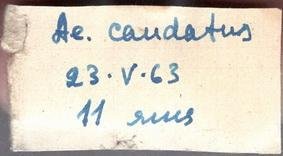 Ae. caudatus
23·V·63
11